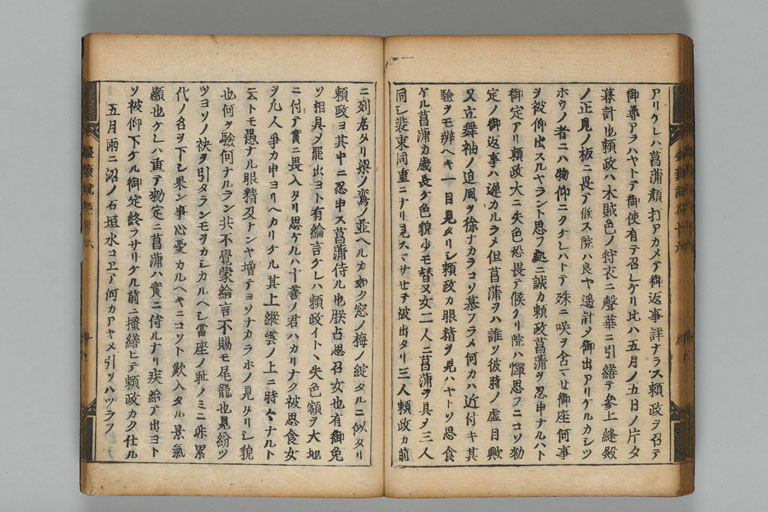 アリケレハ菖蒲顔打アカメテ御返事詳ナラス頼政ヲ召テ
御尋アラハヤトテ御使有テ召レケリ比ハ五月ノ五日ノ片タ
暮計也頼政ハ木賊色ノ狩衣ニ聲華ニ引繕テ参上縫殿
ノ正見ノ板ニ畏テ候ス院ハ良ヤ遥計メ御出アリケルカシツ
ホウノ者ニハ物仰ニクケレハトテ殊ニ咲ヲ含マセ御座何事
ヲ被仰出スルヤラント思フ処ニ誠カ頼政菖蒲ヲ忍申ナルハト
御定アリ頼政大ニ失色恐畏テ候ケリ院ハ憚思フニコソ勅
定ノ御返事ハ遅カルラメ但菖蒲ヲハ誰ソ彼時ノ虚目歟
又立舞袖ノ追風ヲ徐ナカラコソ慕フラメ何カハ近付キ其
験ヲモ辨ヘキ一目見タリシ頼政カ眼精ヲ見ハヤトソ思食
ケル菖蒲カ歳長ケ色貌少モ替ヌ女二人ニ菖蒲ヲ具メ三人
同シ装束同重ニナリ見スマサセテ被出タリ三人頼政カ前
ニ列居タリ梁ノ鸞ノ並ヘルカ如ク窓ノ梅ノ綻タルニ似タリ
頼政ヨ其中ニ忍申ス菖蒲侍ル也朕占思召女也有御免
ソ相具メ罷出ヨト有綸言ケレハ頼政イトヽ失色額ヲ大地
ニ付テ實ニ畏入タリ思ケルハ十善ノ君ハカリナク被思食女
ヲ凡人争カ申ヨリヘカリケル其上縦雲ノ上ニ時々ナルト
云トモ愚ナル眼精及ナンヤ増テヨソナカラホノ見タリシ貌
也何ヲ験何ナルラン共不覺蒙綸言不賜モ尾籠也見紛ツヽ
ツヨソノ袂ヲ引タランモヲカシカルヘシ當座ノ耻ノミニ非累
代ノ名ヲ下シ果ン事心憂カルヘキニコソト歎入タル景氣
顕也ケレハ重テ勅定ニ菖蒲ハ實ニ侍ルナリ疾給テ出ヨト
ソ被仰下ケル御定終ラサリケル前ニ掻繕ヒテ頼政カク仕ル
五月雨ニ沼ノ石垣水コヱテ何カアヤメ引ソハツラフ